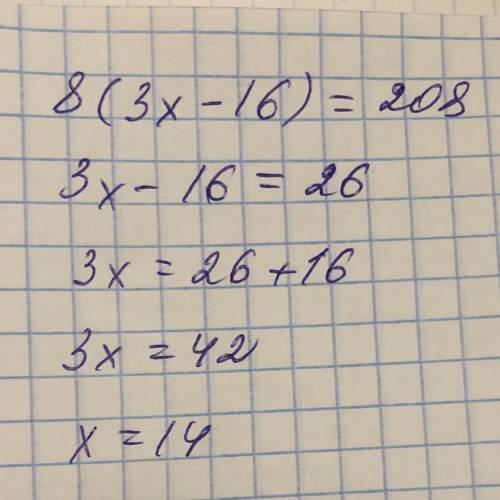 8(3x-16)=208
3x-16=26
3x=26+16
3x=42
x=14